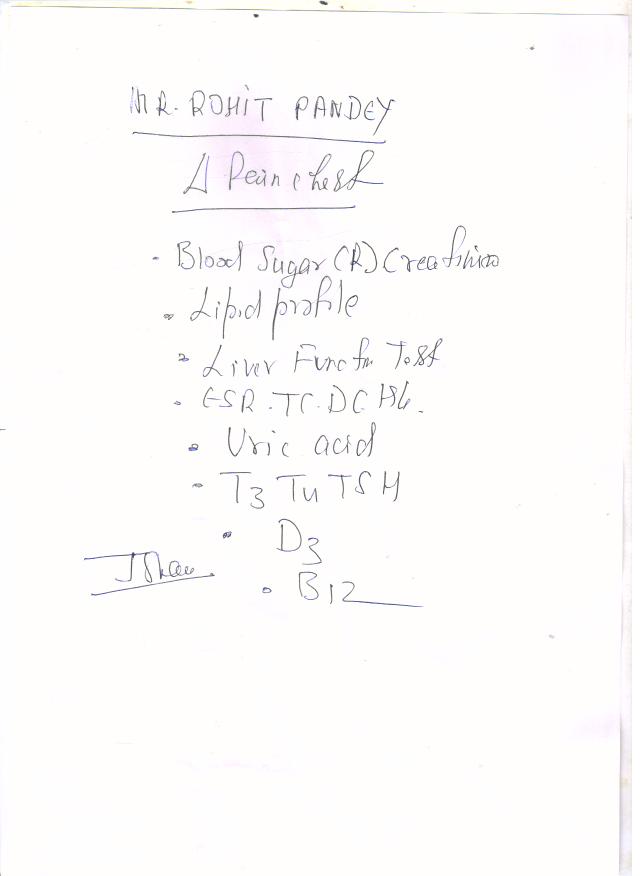 MR. ROHIT PANDEY
Pain chest
• Blood Sugar (R) Creatinine
• Lipid profile
• Liver Functn Test
• ESR. TC. DC. Hb.
• Uric acid
• T3 T4 TSH
• D3
• B12